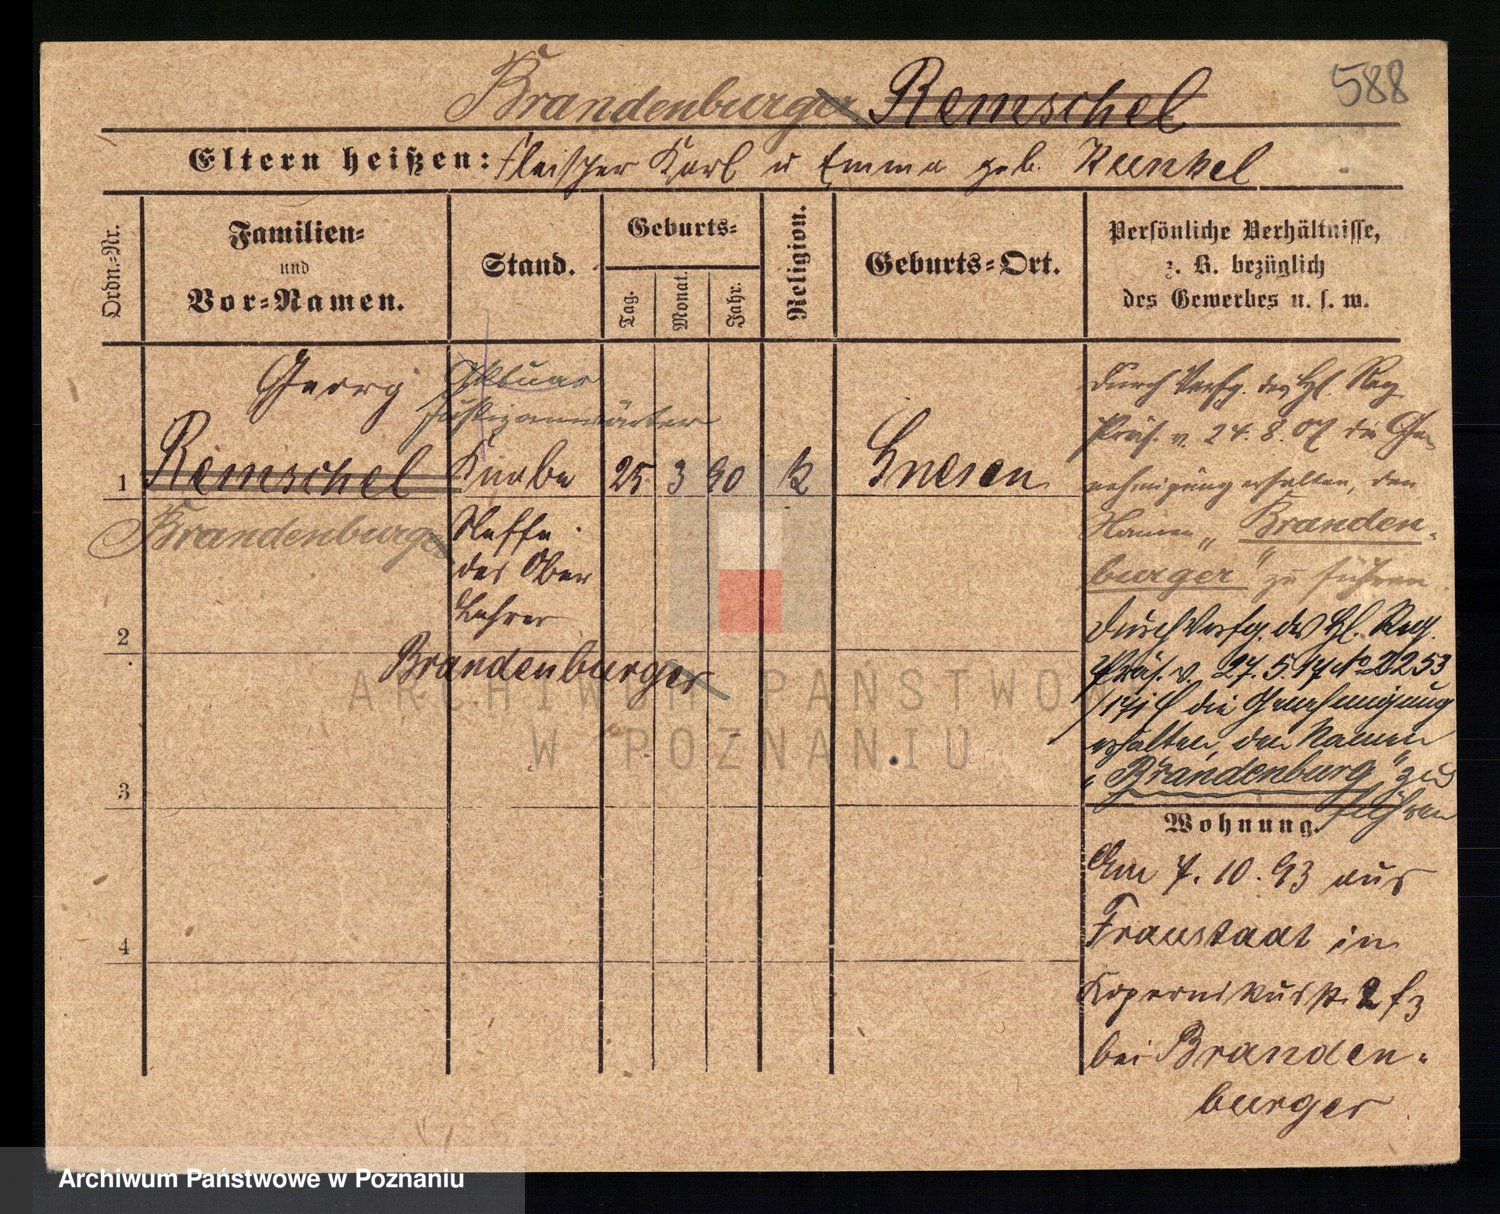 588
Brandenburger Remschel
Eltern heißen: Fleischer Karl u Emma geb. Kunkel
Ordn.-Nr.
Familien-
und
Vor-Namen.
Stand.
Geburts-
Tag.
Monat.
Jahr.
Religion.
Geburts-Ort.
Persönliche Verhältnisse,
z. B. bezüglich
des Gewerbes u. s. w.
Georg
Aktuar
Justizanwärter
1 Remschel Knabe 25 3 90 K Gnesen
Brandenburger
Neffe
des Ober
Lehrer
Brandenburger
2
3
4
durch Verfg. des Kgl. Reg.
Präs. v. 24.8.07 die Ge-
nehmigung erhalten, den
Namen "Branden-
burger" zu führen
Durch Verfg. des Kgl. Reg.
Präs. v. 27.5.17 No 2253
/17 I C die Genehmigung
erhalten, den Namen
"Brandenburg" zu
führen
Wohnung.
Am 7.10.93 aus
Fraustadt in
Kopernikusstr. 2
bei Branden-
burger
ARCHIWUM PAŃSTWOW
W POZNANIU
Archiwum Państwowe w Poznaniu